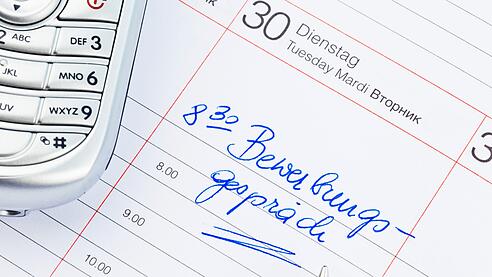 2 ABC
DEF 3
JKL
MNO 6
UV
WXYZ 9
#
30 Dienstag
Tuesday Mardi Вторник
3
8 30 Bewerbungs-
gespräch
8.00
9.00
10.00